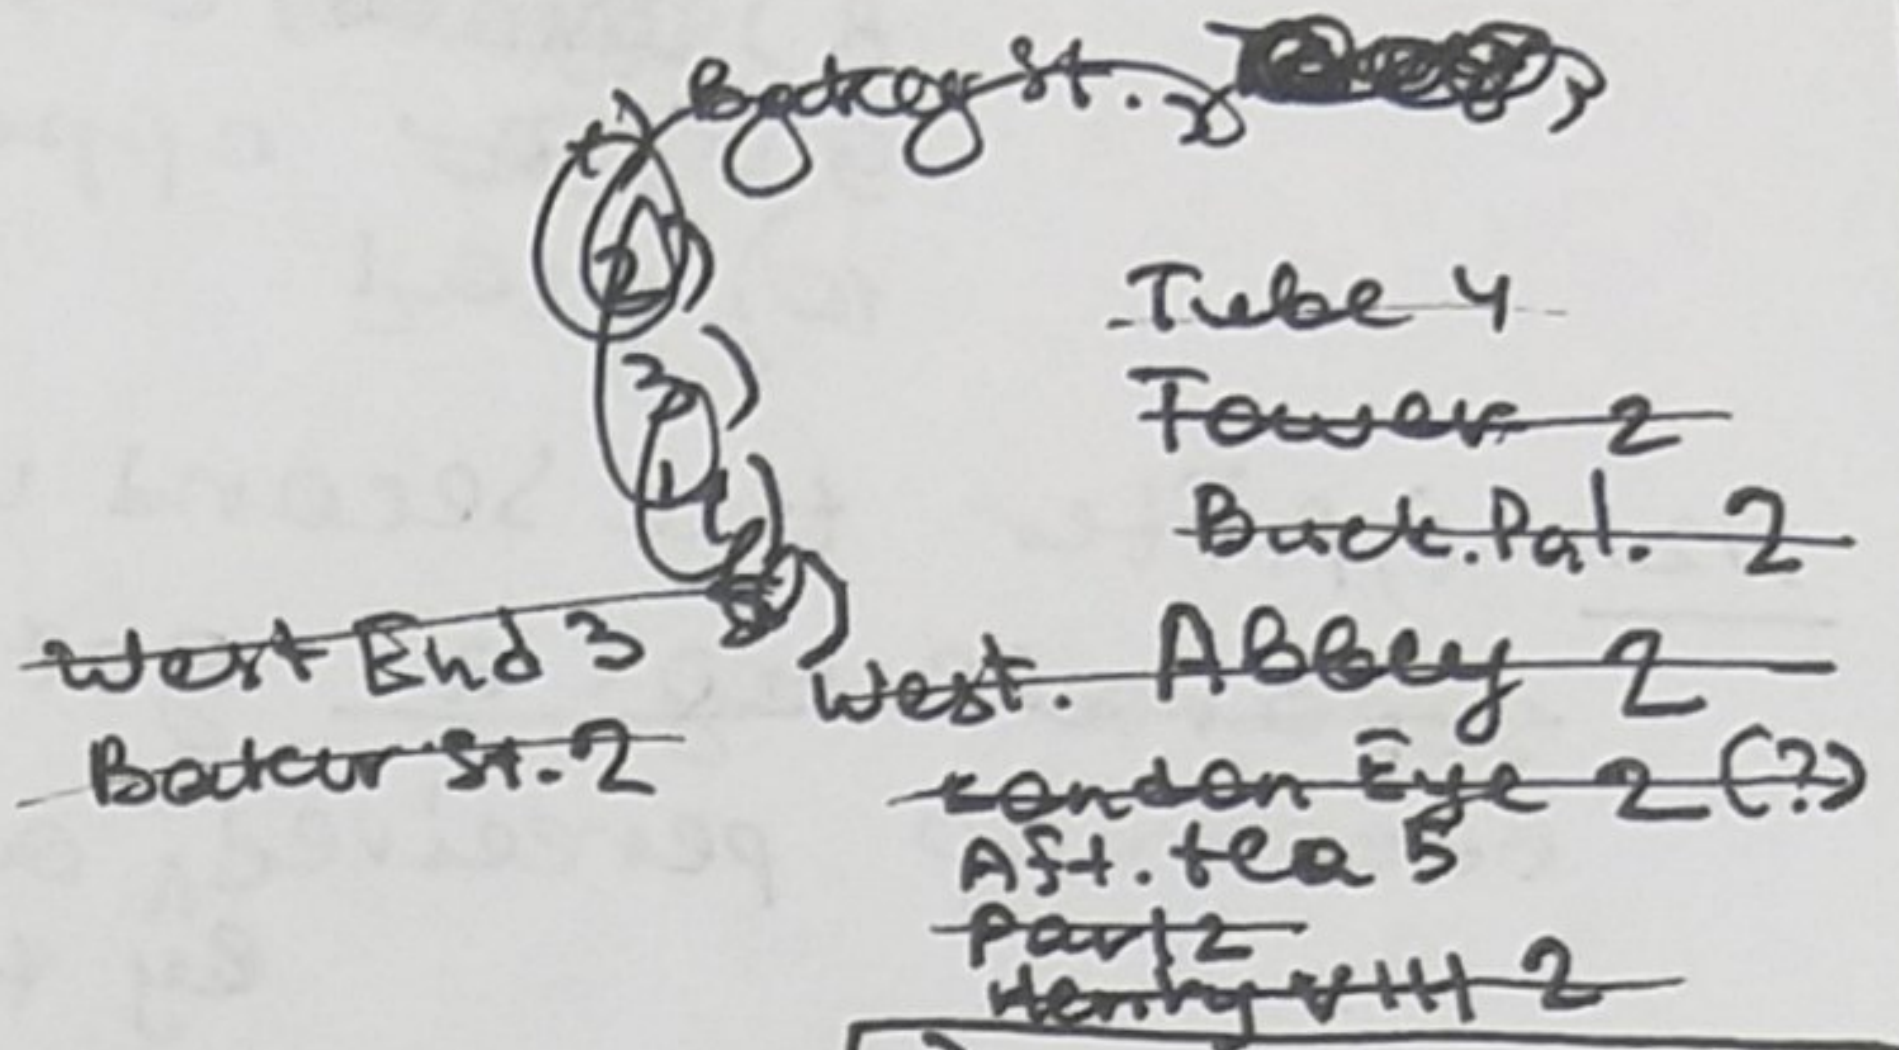 St.
1)
2)
3)
4)
5)
Tube 4
Tower 2
Buck. Pal. 2
West End 3
West. Abbey 2
Baker St. 2
London Eye 2 (?)
Aft. tea 5
Parl 2
Henry VIII 2